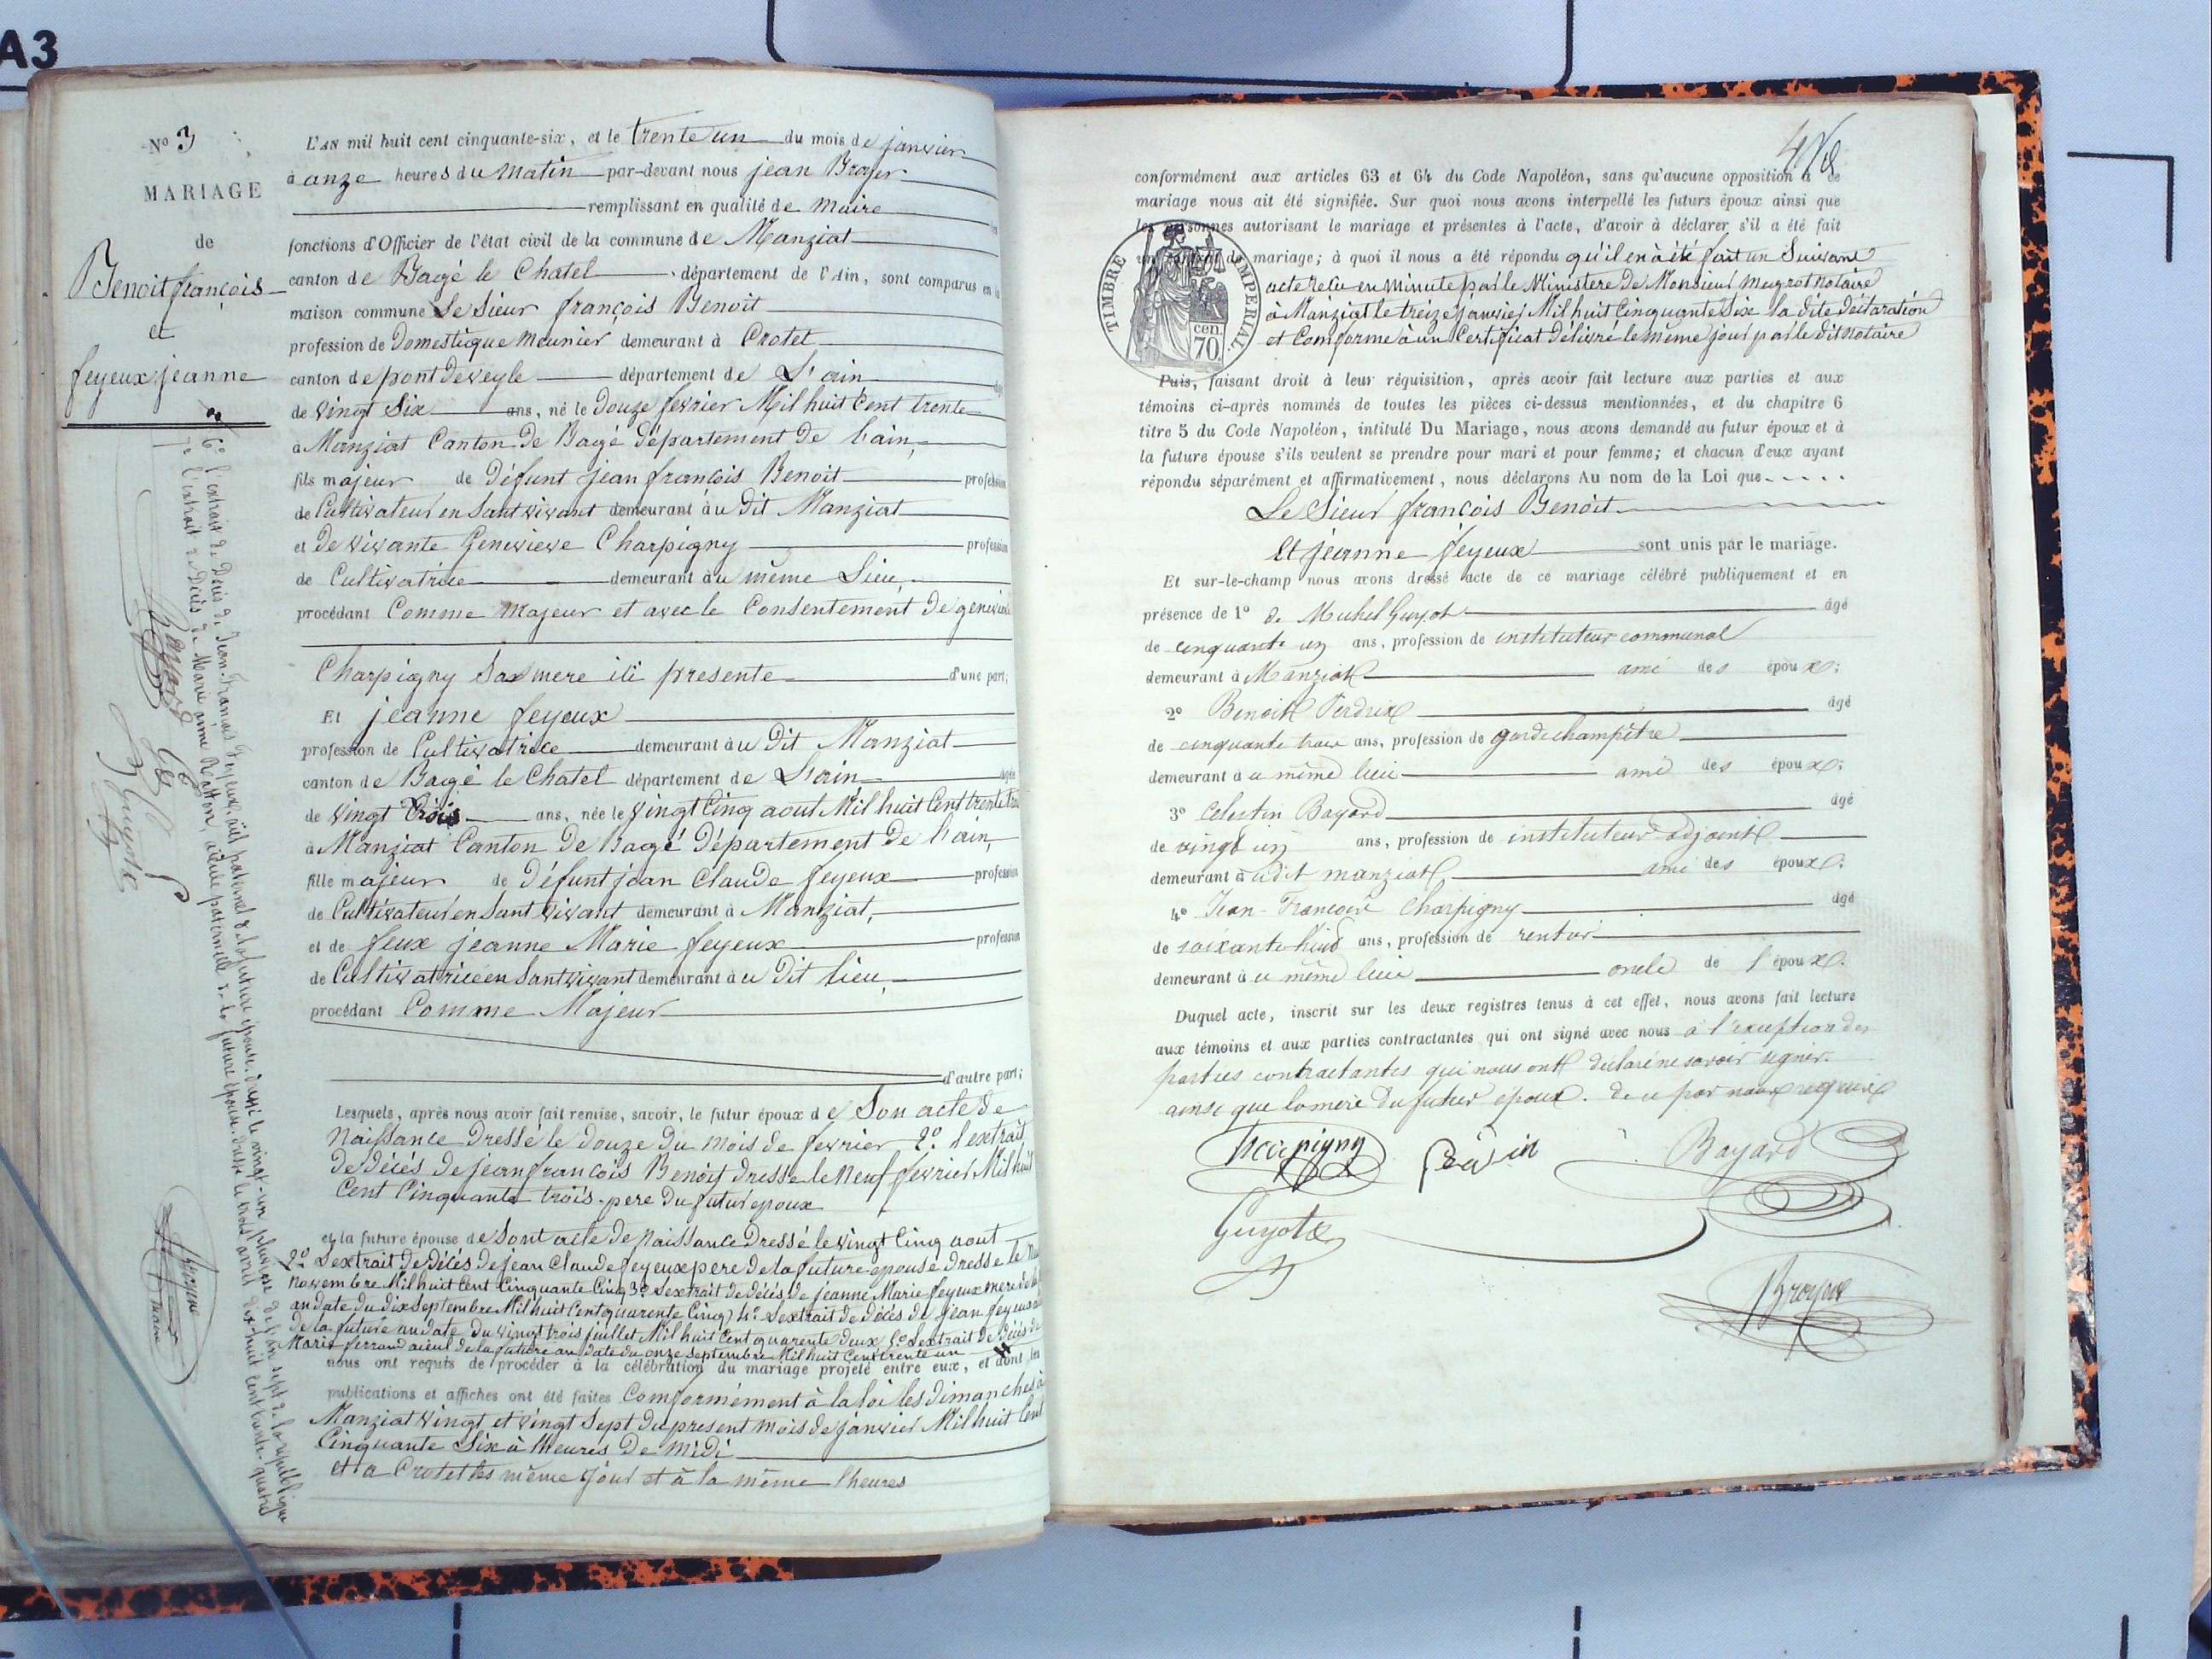 A3
N° 3
MARIAGE
de
Benoit françois
et
feyeux jeanne
L'AN mil huit cent cinquante-six, et le trente un du mois de janvier
à onze heures du Matin par-devant nous jean Broyer
remplissant en qualité de Maire
fonctions d'Officier de l'état civil de la commune de Manziat
canton de Bagé le Chatel département de l'Ain, sont comparus en la
maison commune Le Sieur françois Benoit
profession de Domestique Meunier demeurant à Crotet
canton de pont de veyle département de L'ain
de vingt Six ans, né le Douze fevrier Mil huit Cent trente
à Manziat Canton De Bagé département De l'ain,
fils majeur de Défunt jean françois Benoit profession
de Cultivateur en Sant vivant demeurant àu dit Manziat
et De vivante Genevieve Charpigny profession
de Cultivatrice demeurant àu même Lieu,
procédant Comme Majeur et avec le Consentement De genevieve
Charpigny Sa mere ici presente d'une part;
Et jeanne feyeux
profession de Cultivatrice demeurant àu Dit Manziat
canton de Bagé le Chatel département de L'ain âgée
de vingt trois ans, née le vingt Cinq aout Mil huit Cent trente trois
à Manziat Canton De Bagé Département De l'ain,
fille majeur de Défunt jean Claude feyeux profession
de Cultivateur en Sant vivant demeurant à Manziat,
et de feux jeanne Marie feyeux profession
de Cultivatrice en Sant vivant demeurant àu Dit lieu,
procédant Comme Majeur
d'autre part;
Lesquels, après nous avoir fait remise, savoir, le futur époux de Son acte de
Naissance Dressé le Douze Du Mois de fevrier 2° L'extrait
De Décés De jean françois Benoit Dresse le Neuf fevrier Mil huit
Cent Cinquante trois pere Du futur epoux
et la future épouse de Sont acte De Naissance Dressé le vingt Cinq aout
2° L'extrait De Décés De jean Claude feyeux pere de la future epouse Dresse le
Novembre Mil huit Cent Cinquante Cinq 3° L'extrait de décés de jeanne Marie feyeux mere de la
an date du dix Septembre Mil huit Cent quarente Cinq 4° L'extrait De Décés de jean feyeux
De la future an date Du vingt trois juillet Mil huit Cent quarente Deux 5° L'extrait De Décés de
Marie ferrand aieul de la future an date du onze septembre Mil huit Cent trente un
nous ont requis de procéder à la célébration du mariage projeté entre eux, et dont les
publications et affiches ont été faites Comformément à la loi les dimanches à
Manziat vingt et vingt Sept Du present mois de janvier Mil huit Cent
Cinquante Six à Heures De midi
et a Crotet les même jour et à la même heures
6° l'extrait de Décès de Jean-François Feyeux, aïeul paternel de la future épouse, dressé le vingt-un pluviose de l'an sept de la république
7° l'extrait de Décès de Marie aimé, aïeule paternelle de la future épouse, dressé le trois avril dix-huit cent trente-quatre
Bayard
Guyot
Broyer
maire
conformément aux articles 63 et 64 du Code Napoléon, sans qu'aucune opposition à ce
mariage nous ait été signifiée. Sur quoi nous avons interpellé les futurs époux ainsi que
les personnes autorisant le mariage et présentes à l'acte, d'avoir à déclarer s'il a été fait
un contrat de mariage; à quoi il nous a été répondu qu'il en à été fait un Suivant
acte reçu en minute par le Ministere De Monsieur Mugrot Notaire
à Manziat le treize janvier Mil huit Cinquante Six la dite déclaration
et Comforme à un Certificat Délivré le même jour par le dit Notaire
TIMBRE IMPERIAL
70 cen.
Puis, faisant droit à leur réquisition, après avoir fait lecture aux parties et aux
témoins ci-après nommés de toutes les pièces ci-dessus mentionnées, et du chapitre 6
titre 5 du Code Napoléon, intitulé Du Mariage, nous avons demandé au futur époux et à
la future épouse s'ils veulent se prendre pour mari et pour femme; et chacun d'eux ayant
répondu séparément et affirmativement, nous déclarons Au nom de la Loi que
Le Sieur françois Benoit
Et jeanne feyeux sont unis par le mariage.
Et sur-le-champ nous avons dressé acte de ce mariage célébré publiquement et en
présence de 1° de Michel Guyot âgé
de cinquante un ans, profession de instituteur communal
demeurant à Manziat ami des époux;
2° Benoit Perdrix âgé
de cinquante trois ans, profession de garde champêtre
demeurant à u même lieu ami des époux;
3° Celestin Bayard âgé
de vingt un ans, profession de instituteur adjoint
demeurant à udit manziat, ami des époux;
4° Jean-François Charpigny âgé
de soixante huit ans, profession de rentier
demeurant à u même lieu oncle de l'époux.
Duquel acte, inscrit sur les deux registres tenus à cet effet, nous avons fait lecture
aux témoins et aux parties contractantes qui ont signé avec nous à l'exception des
parties contractantes qui nous ont déclaré ne savoir signer
ainsi que la mère du futur époux. de ce par nous requis
Bayard
Guyot
Broyer